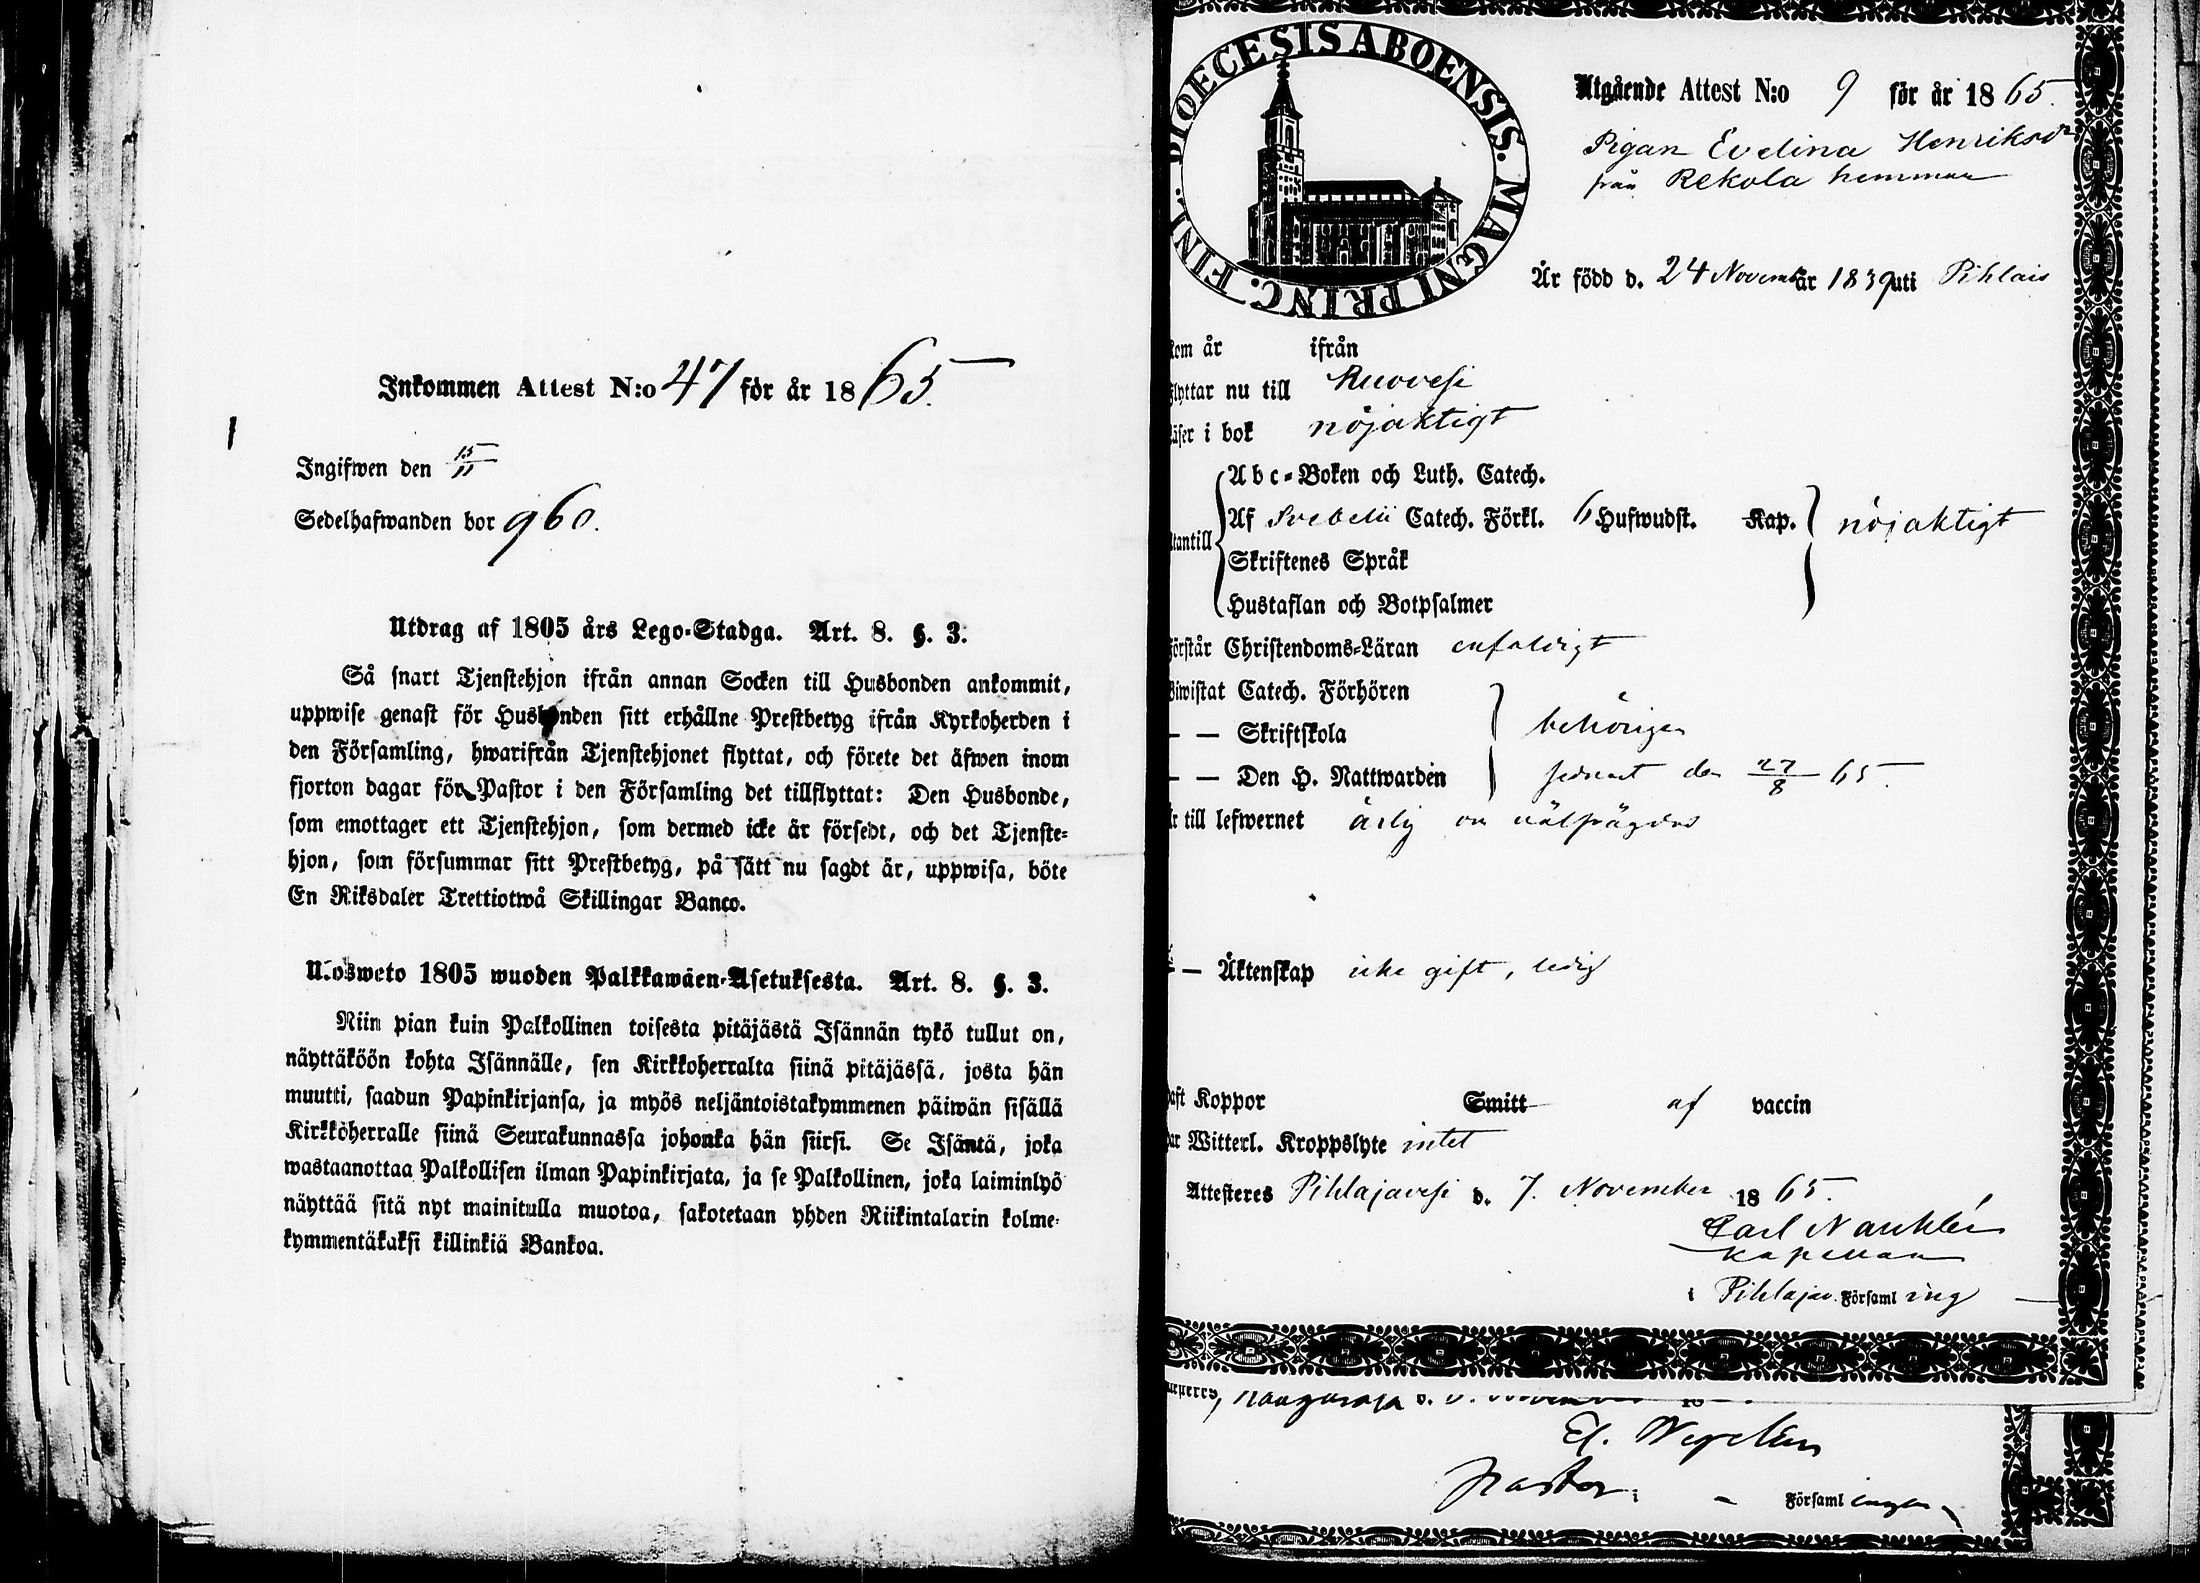 Inkommen Attest N:o 47 för år 1865.
Ingifwen den 15/11
Sedelhafwanden bor 960.
Utdrag af 1805 års Lego-Stadga. Art. 8. §. 3.
Så snart Tjenstehjon ifrån annan Socken till Husbonden ankommit,
uppwise genast för Husbonden sitt erhållne Prestbetyg ifrån Kyrkoherden i
den Församling, hwarifrån Tjenstehjonet flyttat, och förete det äfwen inom
fjorton dagar för Pastor i den Församling det tillflyttat: Den Husbonde,
som emottager ett Tjenstehjon, som dermed icke är försedt, och det Tjenste-
hjon, som försummar sitt Prestbetyg, på sätt nu sagdt är, uppwisa, böte
En Riksdaler Trettiotwå Skillingar Banco.
Ulosweto 1805 wuoden Palkkawäen-Asetuksesta. Art. 8. §. 3.
Niin pian kuin Palkollinen toisesta pitäjästä Isännän tykö tullut on,
näyttäköön kohta Isännälle, sen Kirkkoherralta siinä pitäjässä, josta hän
muutti, saadun Papinkirjansa, ja myös neljäntoistakymmenen päiwän sisällä
Kirkkoherralle siinä Seurakunnassa johonka hän siirsi. Se Isäntä, joka
wastaanottaa Palkollisen ilman Papinkirjata, ja se Palkollinen, joka laiminlyö
näyttää sitä nyt mainitulla muotoa, sakotetaan yhden Riikintalarin kolme-
kymmentäkaksi killinkiä Bankoa.
DIOECESIS ABOENSIS. MAGNI PRINC. FINL.
Utgående Attest N:o 9 för år 1865.
Pigan Evelina Henriksdr
från Rekola hemman
Är född d. 24 Novemb år 1839 uti Pihlais
kom år ifrån
flyttar nu till Ruovesi
läser i bok nöjaktigt
Abc-Boken och Luth. Catech.
Af Svebelii Catech. Förkl. 6 Hufwudst. Kap. nöjaktigt
utantill
Skriftenes Språk
Hustaflan och Botpsalmer
förstår Christendoms-Läran enfaldigt
Biwistat Catech. Förhören
— — Skriftskola behörigen
— — Den H. Nattwarden senast den 27/8 65.
är till lefwernet ärlig och välfrägdad
— Äktenskap icke gift, ledig
haft Koppor Smitt af vaccin
har Witterl. Kroppslyte intet
Attesteres Pihlajavesi d. 7. November 1865.
Carl
Kapellan
i Pihlajav. Församling
d.
El.
Pastor i — Församlingen